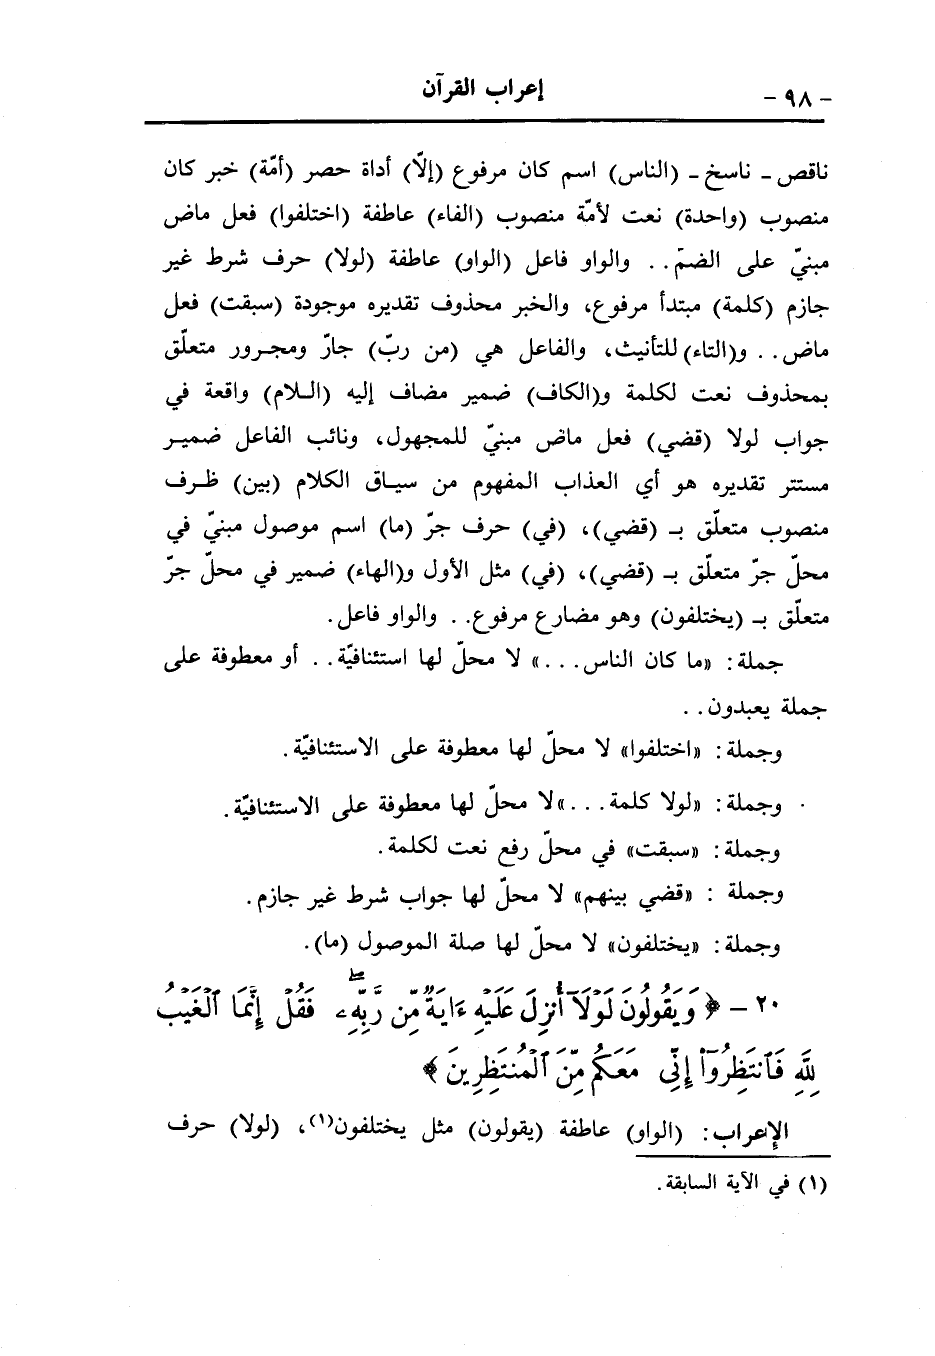 - ٩٨ -
إعراب القرآن
ناقص - ناسخ - (الناس) اسم كان مرفوع (إلّا) أداة حصر (أمّة) خبر كان
منصوب (واحدة) نعت لأمّة منصوب (الفاء) عاطفة (اختلفوا) فعل ماض
مبنيّ على الضمّ.. والواو فاعل (الواو) عاطفة (لولا) حرف شرط غير
جازم (كلمة) مبتدأ مرفوع، والخبر محذوف تقديره موجودة (سبقت) فعل
ماض.. و(التاء) للتأنيث، والفاعل هي (من ربّ) جارّ ومجرور متعلّق
بمحذوف نعت لكلمة و(الكاف) ضمير مضاف إليه (اللام) واقعة في
جواب لولا (قضي) فعل ماض مبنيّ للمجهول، ونائب الفاعل ضمير
مستتر تقديره هو أي العذاب المفهوم من سياق الكلام (بين) ظرف
منصوب متعلّق بـ (قضي)، (في) حرف جرّ (ما) اسم موصول مبنيّ في
محلّ جرّ متعلّق بـ (قضي)، (في) مثل الأول و(الهاء) ضمير في محلّ جرّ
متعلّق بـ (يختلفون) وهو مضارع مرفوع.. والواو فاعل.
جملة: «ما كان الناس...» لا محلّ لها استئنافيّة.. أو معطوفة على
جملة يعبدون..
وجملة: «اختلفوا» لا محلّ لها معطوفة على الاستئنافيّة.
وجملة: «لولا كلمة...» لا محلّ لها معطوفة على الاستئنافيّة.
وجملة: «سبقت» في محلّ رفع نعت لكلمة.
وجملة : «قضي بينهم» لا محلّ لها جواب شرط غير جازم.
وجملة: «يختلفون» لا محلّ لها صلة الموصول (ما).
٢٠ - ﴿ وَيَقُولُونَ لَوْلَآ أُنزِلَ عَلَيْهِ ءَايَةٌ مِّن رَّبِّهِۦ ۖ فَقُلْ إِنَّمَا ٱلْغَيْبُ
لِلَّهِ فَٱنتَظِرُوٓا۟ إِنِّى مَعَكُم مِّنَ ٱلْمُنتَظِرِينَ ﴾
الإعراب: (الواو) عاطفة (يقولون) مثل يختلفون(١)، (لولا) حرف
(١) في الآية السابقة.